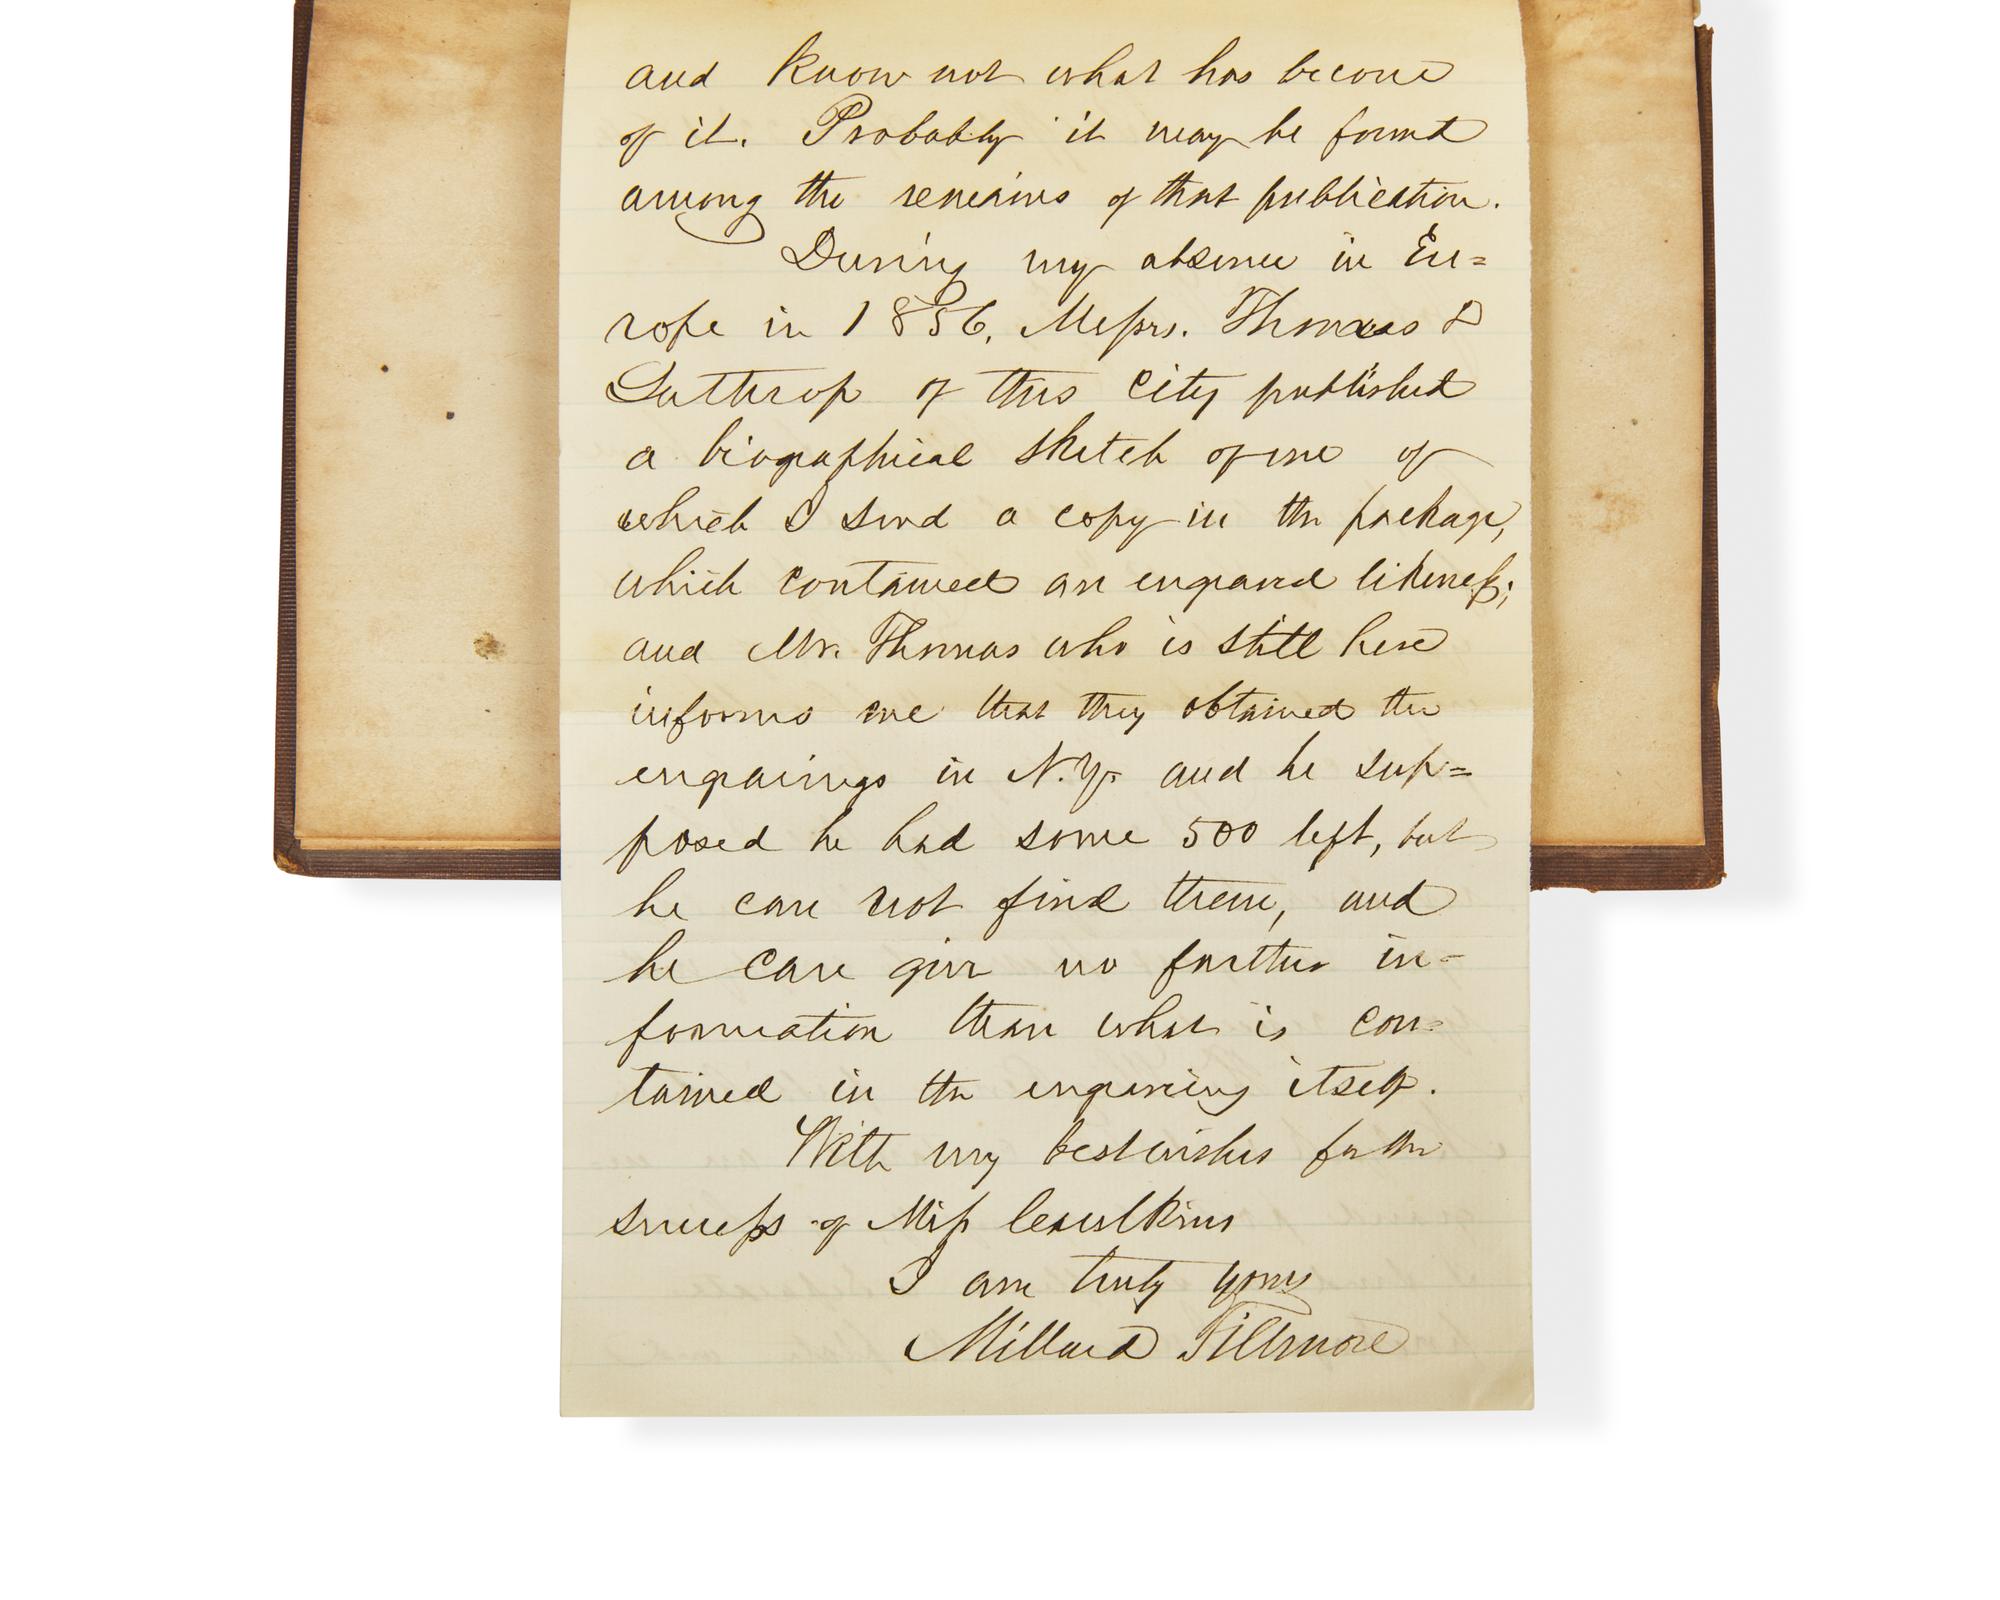 and know not what has become
of it. Probably it may be found
among the remains of that publication.
During my absence in Eu=
rope in 1856, Messrs. Thomas &
Lathrop of this city published
a biographical sketch of me of
which I send a copy in the package,
which contained an engraved likeness;
and Mr. Thomas who is still here
informs me that they obtained the
engravings in N.Y. and he sup=
posed he had some 500 left, but
he can not find them, and
he can give no further in-
formation than what is con-
tained in the engraving itself.
With my best wishes for the
success of Miss Caulkins
I am truly yours
Millard Fillmore